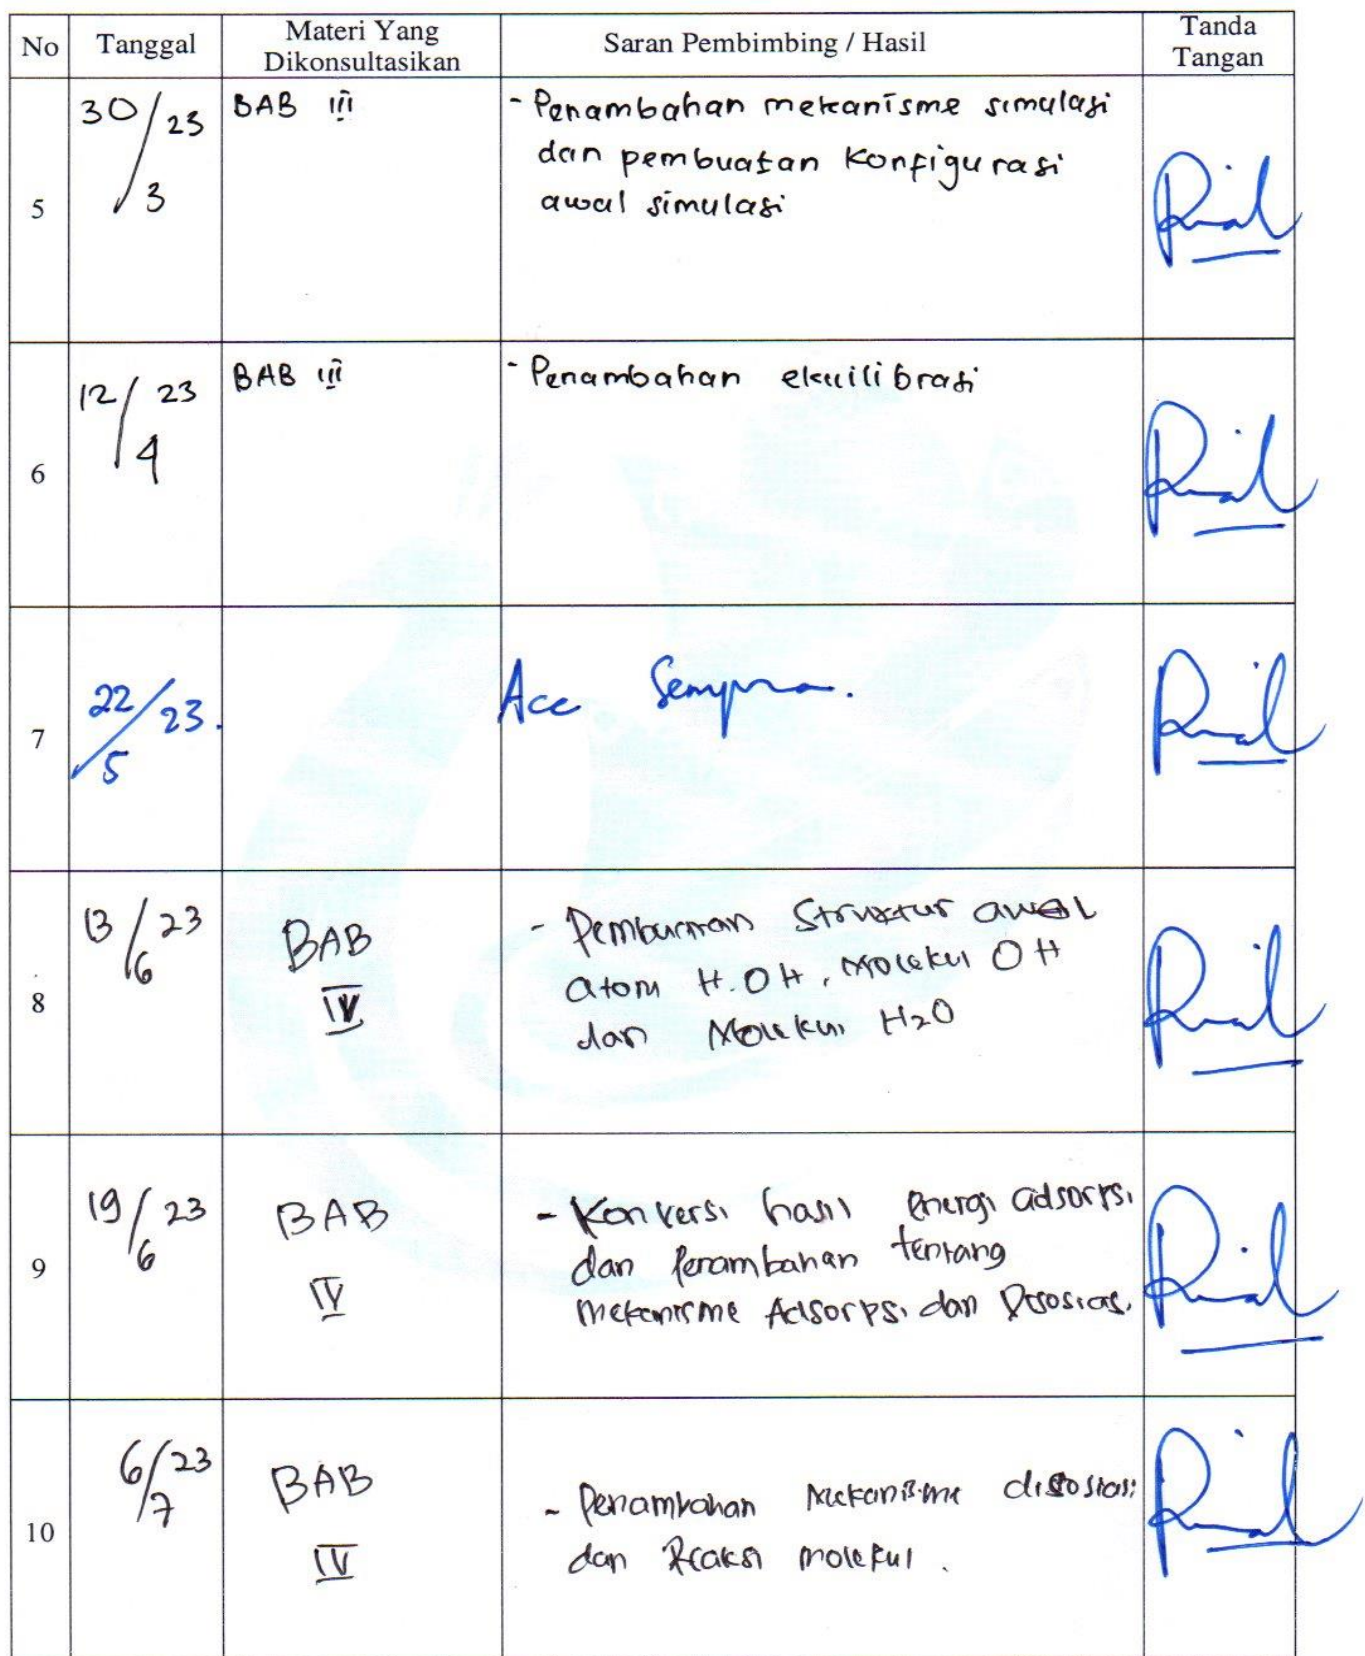 No Tanggal Materi Yang Dikonsultasikan Saran Pembimbing / Hasil Tanda Tangan
5 30/3 23 BAB III - Penambahan mekanisme simulasi
dan pembuatan konfigurasi
awal simulasi
6 12/4 23 BAB III - Penambahan ekuilibrasi
7 22/5 23. Acc Sempro.
8 13/6 23 BAB IV - Pembuatan Struktur awal
atom H.OH, Molekul OH
dan Molekul H2O
9 19/6 23 BAB IV - Konversi hasil Energi adsorpsi
dan Penambahan tentang
mekanisme Adsorpsi dan Disosiasi.
10 6/7 23 BAB IV - Penambahan Mekanisme disosiasi
dan Reaksi molekul.